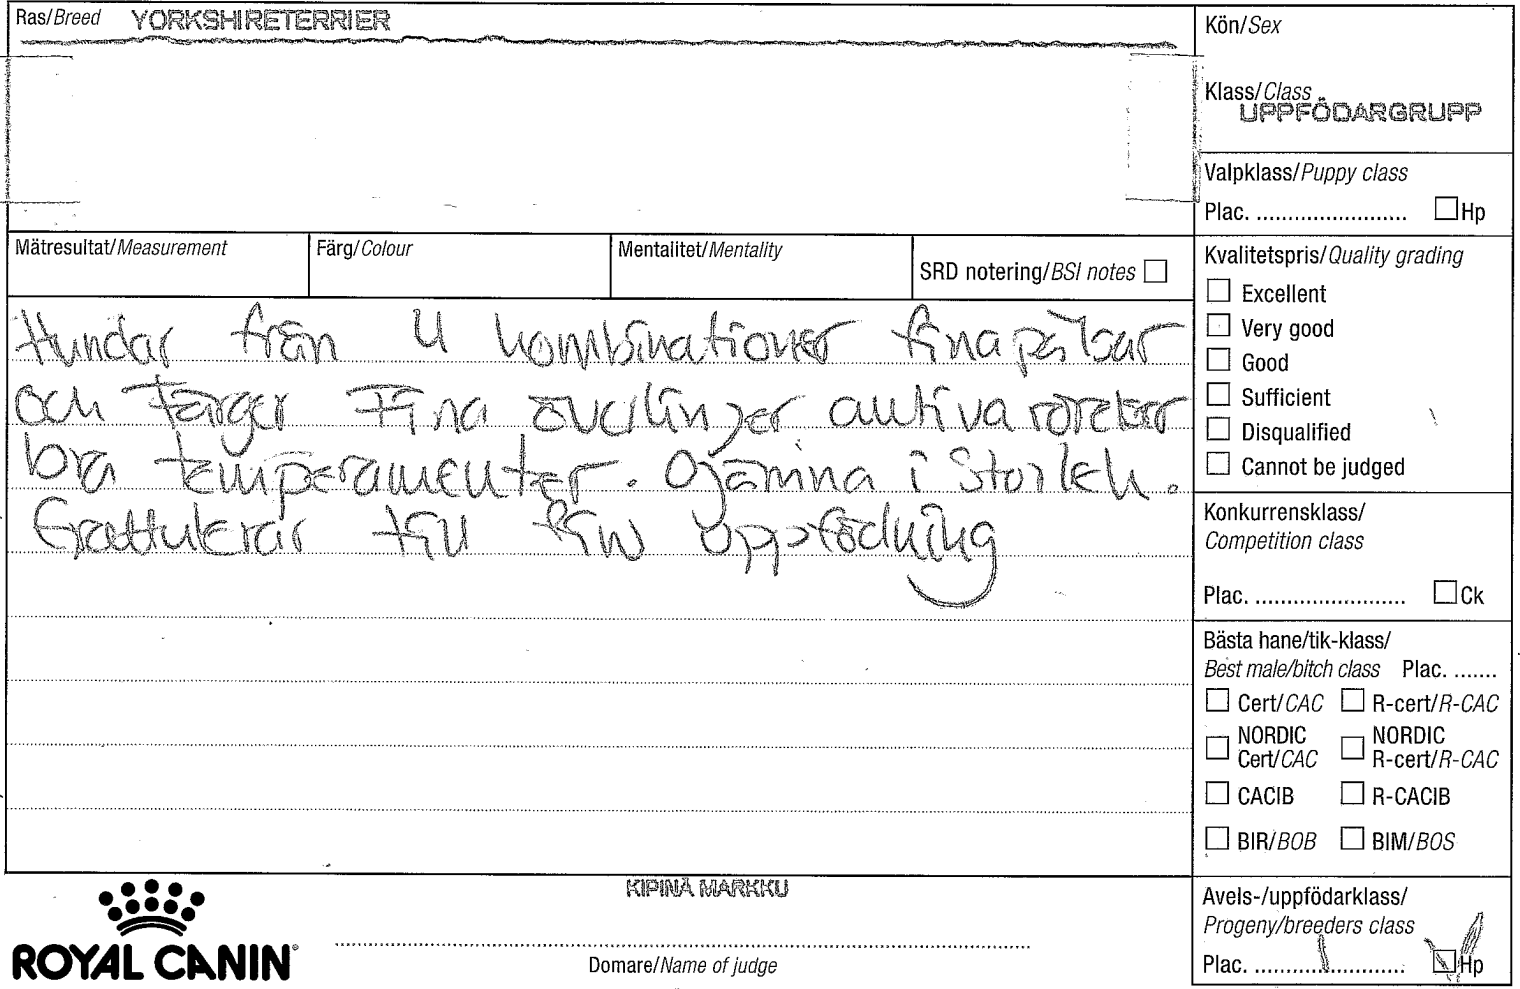 Ras/Breed YORKSHIRETERRIER
Kön/Sex
Klass/Class
UPPFÖDARGRUPP
Valpklass/Puppy class
Plac. ........................ Hp
Mätresultat/Measurement
Färg/Colour
Mentalitet/Mentality
SRD notering/BSI notes
Kvalitetspris/Quality grading
Excellent
Very good
Good
Sufficient
Disqualified
Cannot be judged
Hundar från 4 kombinationer fina pälsar
och färger Fina överlinjer aktiva rörelser
bra temperamenter. Ojämna i storlek.
Grattulerar till fin uppfödning
Konkurrensklass/
Competition class
Plac. ........................ Ck
Bästa hane/tik-klass/
Best male/bitch class Plac. .......
Cert/CAC R-cert/R-CAC
NORDIC Cert/CAC NORDIC R-cert/R-CAC
CACIB R-CACIB
BIR/BOB BIM/BOS
KIPINÄ MARKKU
ROYAL CANIN®
Domare/Name of judge
Avels-/uppfödarklass/
Progeny/breeders class
Plac. ...........1............ Hp